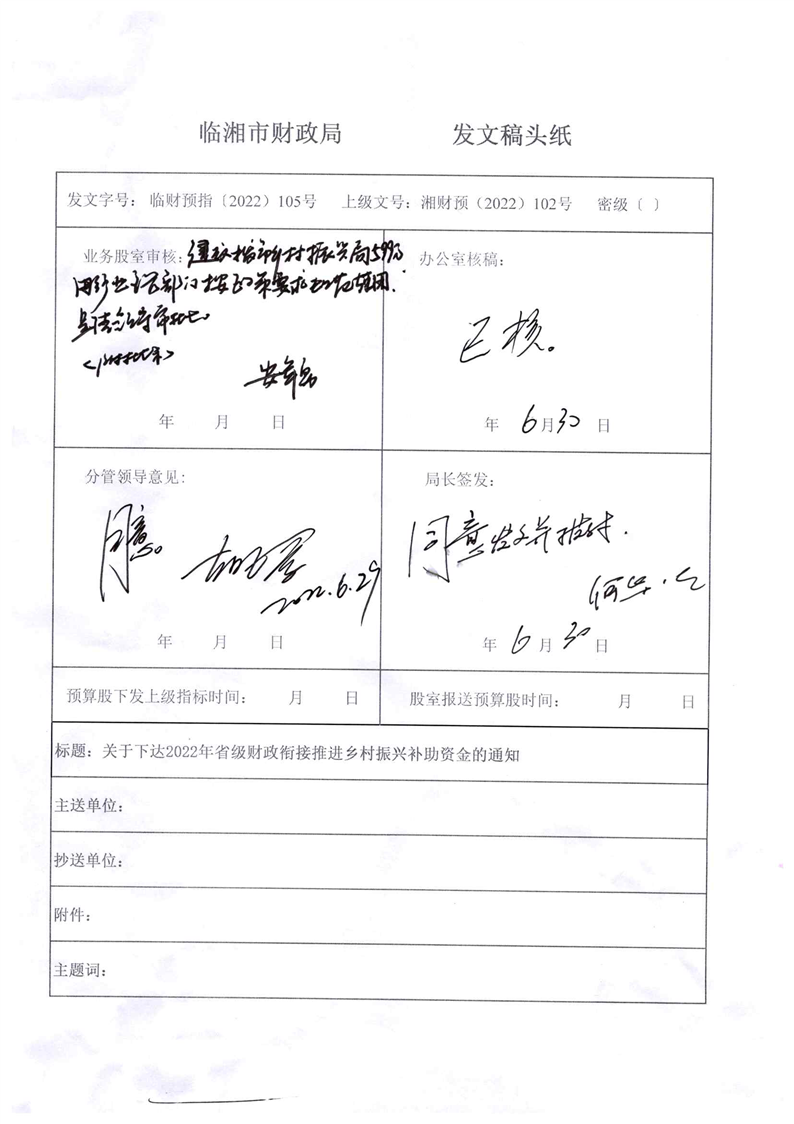 临湘市财政局 发文稿头纸
发文字号： 临财预指〔2022〕105号 上级文号：湘财预（2022）102号 密级〔 〕
业务股室审核：
年 月 日
办公室核稿：
已核。
年 6月30日
分管领导意见：
同意。
2022.6.29
年 月 日
局长签发：
同意发文并
年 6月30日
预算股下发上级指标时间： 月 日 股室报送预算股时间： 月 日
标题：关于下达2022年省级财政衔接推进乡村振兴补助资金的通知
主送单位：
抄送单位：
附件：
主题词：